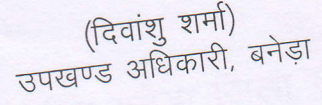 (दिवांशु शर्मा)
उपखण्ड अधिकारी, बनेड़ा